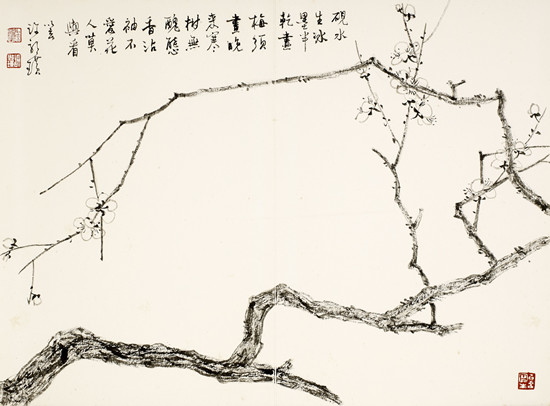 硯水
生冰
墨半
乾畫
梅須
畫晚
來寒
樹無
醜態
香沾
袖不
愛花
人莫
與看